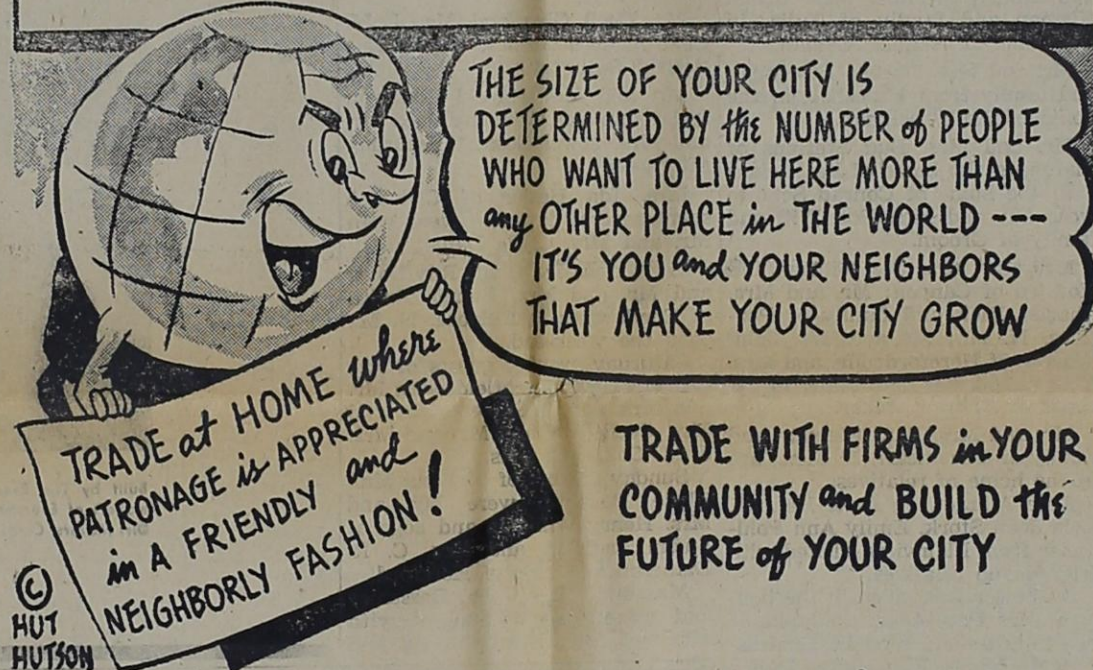 THE SIZE OF YOUR CITY IS
DETERMINED BY the NUMBER of PEOPLE
WHO WANT TO LIVE HERE MORE THAN
any OTHER PLACE in THE WORLD ---
IT'S YOU and YOUR NEIGHBORS
THAT MAKE YOUR CITY GROW
TRADE at HOME where
PATRONAGE is APPRECIATED
in A FRIENDLY and
NEIGHBORLY FASHION!
TRADE WITH FIRMS in YOUR
COMMUNITY and BUILD the
FUTURE of YOUR CITY
©
HUT
HUTSON